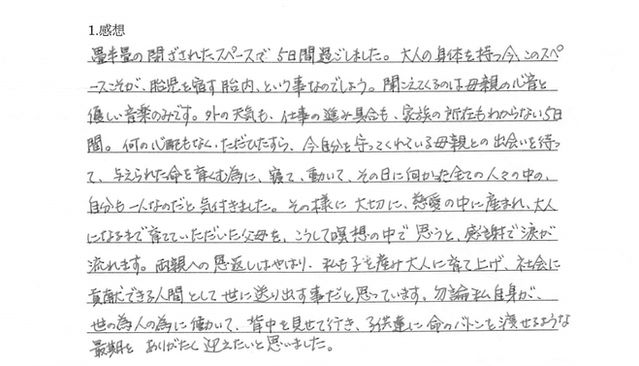 1.感想
畳半畳の閉ざされたスペースで5日間過ごしました。大人の身体を持つ今、このスペ
ースこそが、胎児を宿す胎内、という事なのでしょう。聞こえてくるのは母親の心音と
優しい音楽のみです。外の天気も、仕事の進み具合も、家族の所在もわからない5日
間。何の心配もなく、ただひたすら、今自分を守ってくれている母親との出会いを待っ
て、与えられた命を育くむ為に、寝て、動いて、その日に向かった全ての人々の中の、
自分も一人なのだと気付きました。その様に大切に、慈愛の中に産まれ、大人
になるまで育てていただいた父母を、こうして瞑想の中で思うと、感謝で涙が
流れます。両親への恩返しはやはり、私も子を産み大人に育て上げ、社会に
貢献できる人間として世に送り出す事だと思っています。勿論私自身が、
世の為人の為に働いて、背中を見せて行き、子供達に命のバトンを渡せるような
最期を ありがたく迎えたいと思いました。